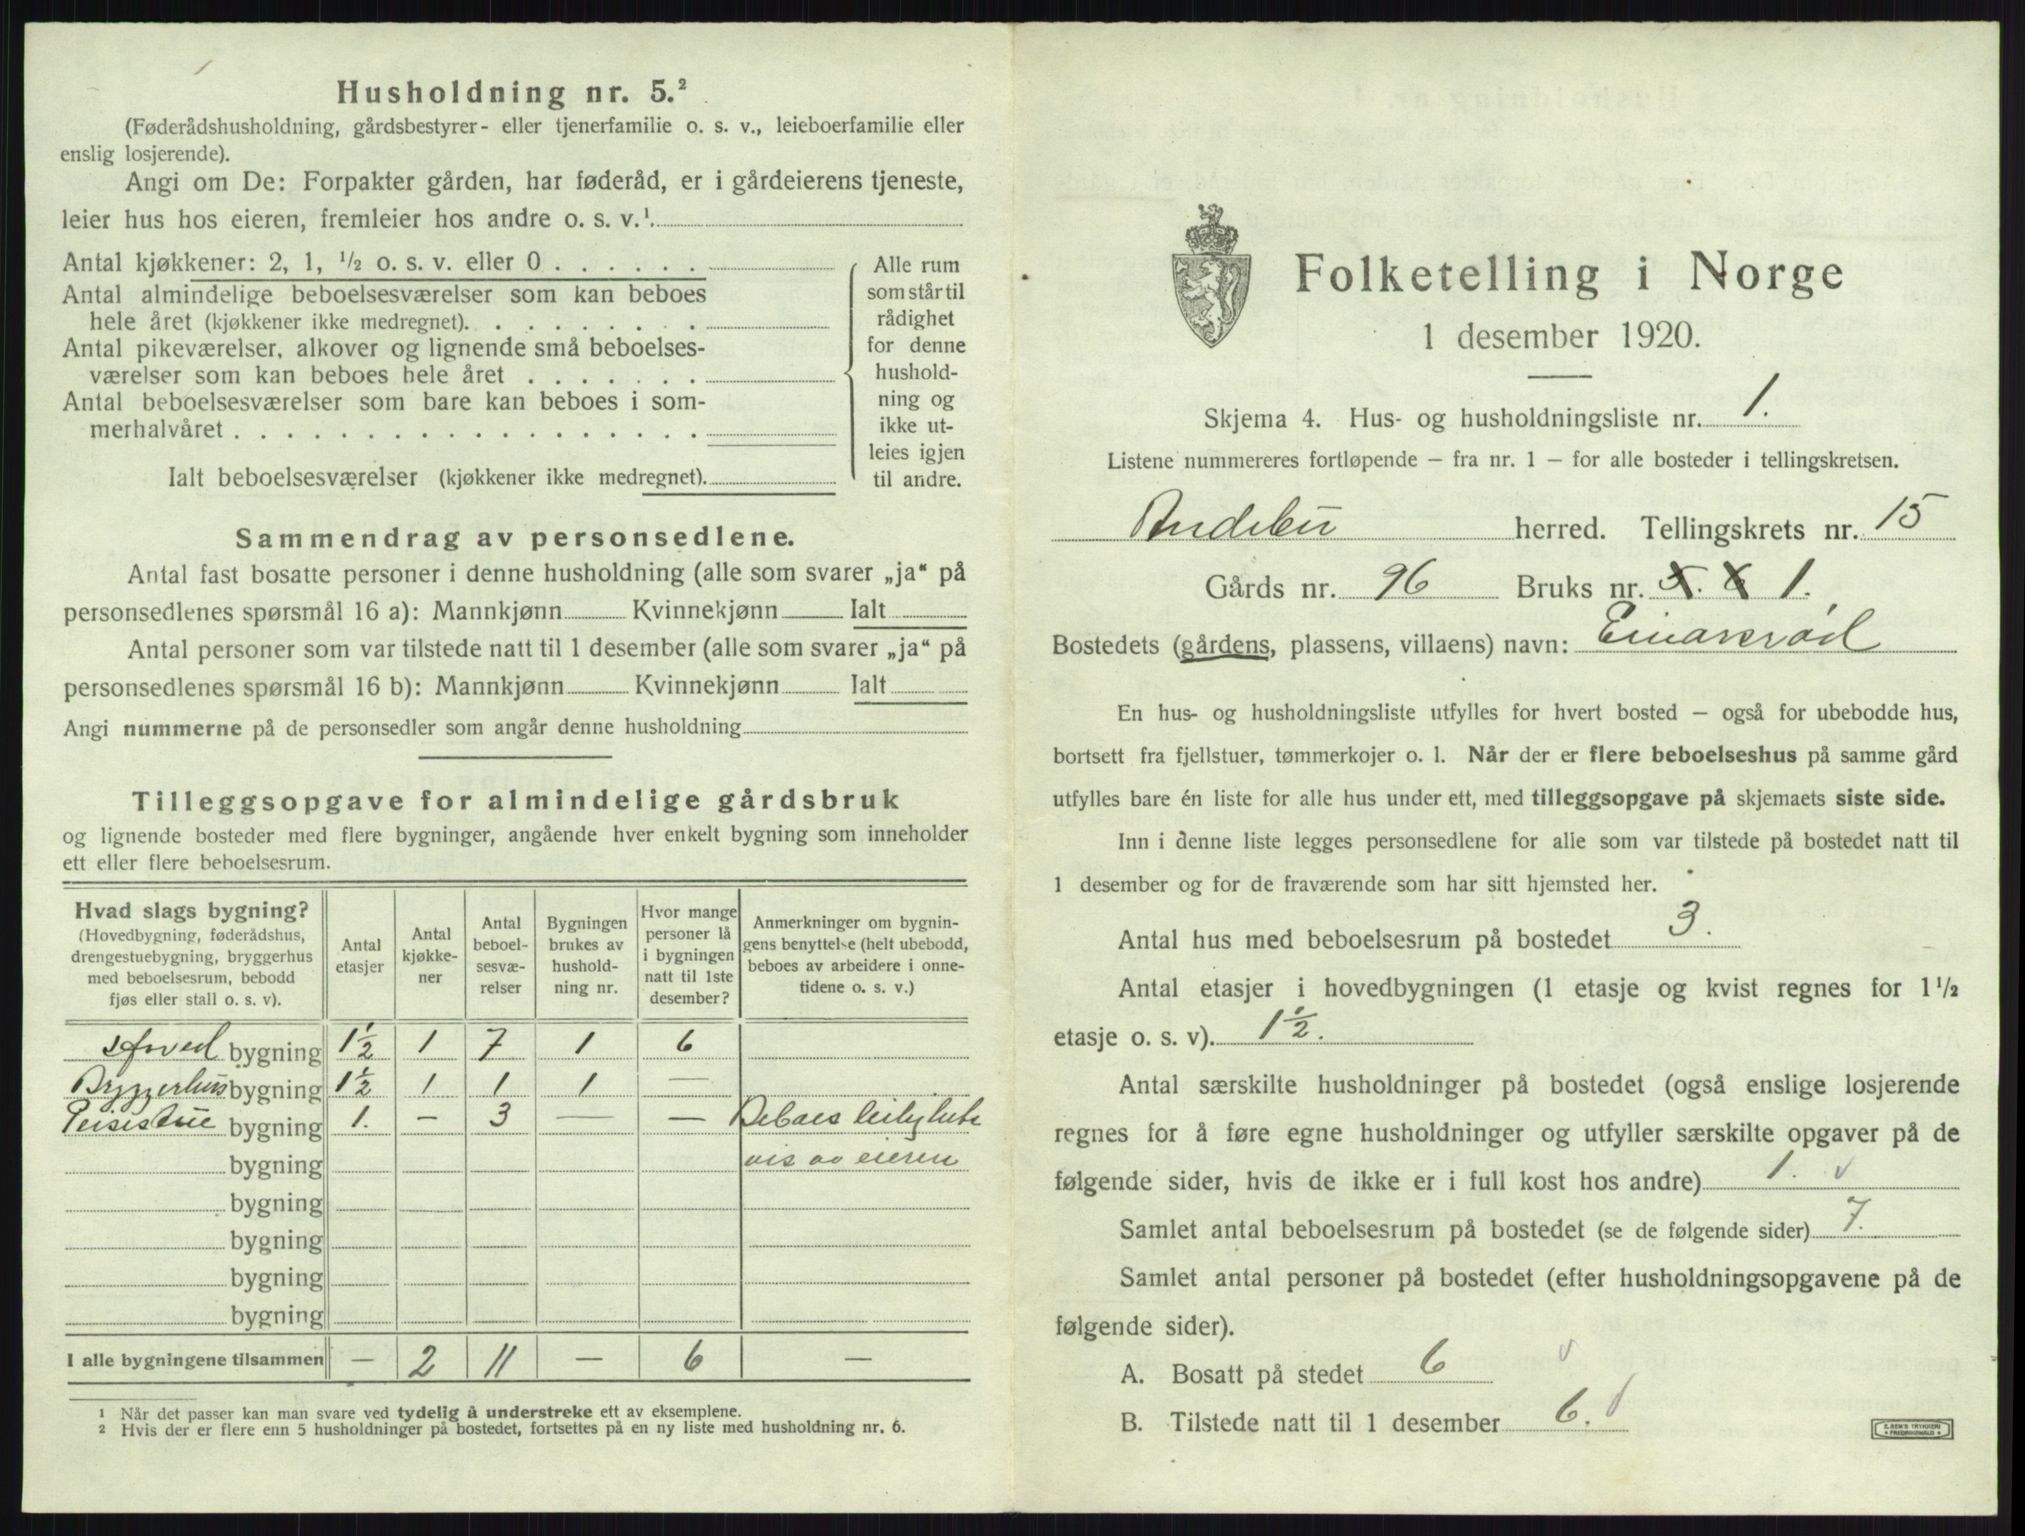 Husholdning nr. 5.²
(Føderådshusholdning, gårdsbestyrer- eller tjenerfamilie o. s. v., leieboerfamilie eller
enslig losjerende).
Angi om De: Forpakter gården, har føderåd, er i gårdeierens tjeneste,
leier hus hos eieren, fremleier hos andre o. s. v.¹
Antal kjøkkener: 2, 1, ½ o. s. v. eller 0
Antal almindelige beboelsesværelser som kan beboes
hele året (kjøkkener ikke medregnet).
Antal pikeværelser, alkover og lignende små beboelses-
værelser som kan beboes hele året
Antal beboelsesværelser som bare kan beboes i som-
merhalvåret
Ialt beboelsesværelser (kjøkkener ikke medregnet).
Alle rum
som står til
rådighet
for denne
hushold-
ning og
ikke ut-
leies igjen
til andre.
Sammendrag av personsedlene.
Antal fast bosatte personer i denne husholdning (alle som svarer „ja“ på
personsedlenes spørsmål 16 a): Mannkjønn Kvinnekjønn Ialt
Antal personer som var tilstede natt til 1 desember (alle som svarer „ja“ på
personsedlenes spørsmål 16 b): Mannkjønn Kvinnekjønn Ialt
Angi nummerne på de personsedler som angår denne husholdning
Tilleggsopgave for almindelige gårdsbruk
og lignende bosteder med flere bygninger, angående hver enkelt bygning som inneholder
ett eller flere beboelsesrum.
Hvad slags bygning?
(Hovedbygning, føderådshus,
drengestuebygning, bryggerhus
med beboelsesrum, bebodd
fjøs eller stall o. s. v).
Antal
etasjer
Antal
kjøkke-
ner
Antal
beboel-
sesvæ-
relser
Bygningen
brukes av
hushold-
ning nr.
Hvor mange
personer lå
i bygningen
natt til 1ste
desember?
Anmerkninger om bygnin-
gens benyttelse (helt ubebodd,
beboes av arbeidere i onne-
tidene o. s. v.)
Hoved bygning 1½ 1 7 1 6
Bryggerhus bygning 1½ 1 1 1 —
Peisestue bygning 1. — 3 — — Beboes leilighets
bygning vis av eieren
bygning
bygning
bygning
bygning
I alle bygningene tilsammen — 2 11 — 6 —
¹ Når det passer kan man svare ved tydelig å understreke ett av eksemplene.
² Hvis der er flere enn 5 husholdninger på bostedet, fortsettes på en ny liste med husholdning nr. 6.
Folketelling i Norge
1 desember 1920.
Skjema 4. Hus- og husholdningsliste nr. 1.
Listene nummereres fortløpende – fra nr. 1 – for alle bosteder i tellingskretsen.
Andebu herred. Tellingskrets nr. 15
Gårds nr. 96 Bruks nr. 1.
Bostedets (gårdens, plassens, villaens) navn: Einarsrød
En hus- og husholdningsliste utfylles for hvert bosted – også for ubebodde hus,
bortsett fra fjellstuer, tømmerkojer o. l. Når der er flere beboelseshus på samme gård
utfylles bare én liste for alle hus under ett, med tilleggsopgave på skjemaets siste side.
Inn i denne liste legges personsedlene for alle som var tilstede på bostedet natt til
1 desember og for de fraværende som har sitt hjemsted her.
Antal hus med beboelsesrum på bostedet 3.
Antal etasjer i hovedbygningen (1 etasje og kvist regnes for 1½
etasje o. s. v). 1½.
Antal særskilte husholdninger på bostedet (også enslige losjerende
regnes for å føre egne husholdninger og utfyller særskilte opgaver på de
følgende sider, hvis de ikke er i full kost hos andre) 1. v
Samlet antal beboelsesrum på bostedet (se de følgende sider) 7.
Samlet antal personer på bostedet (efter husholdningsopgavene på de
følgende sider).
A. Bosatt på stedet 6 v
B. Tilstede natt til 1 desember 6.